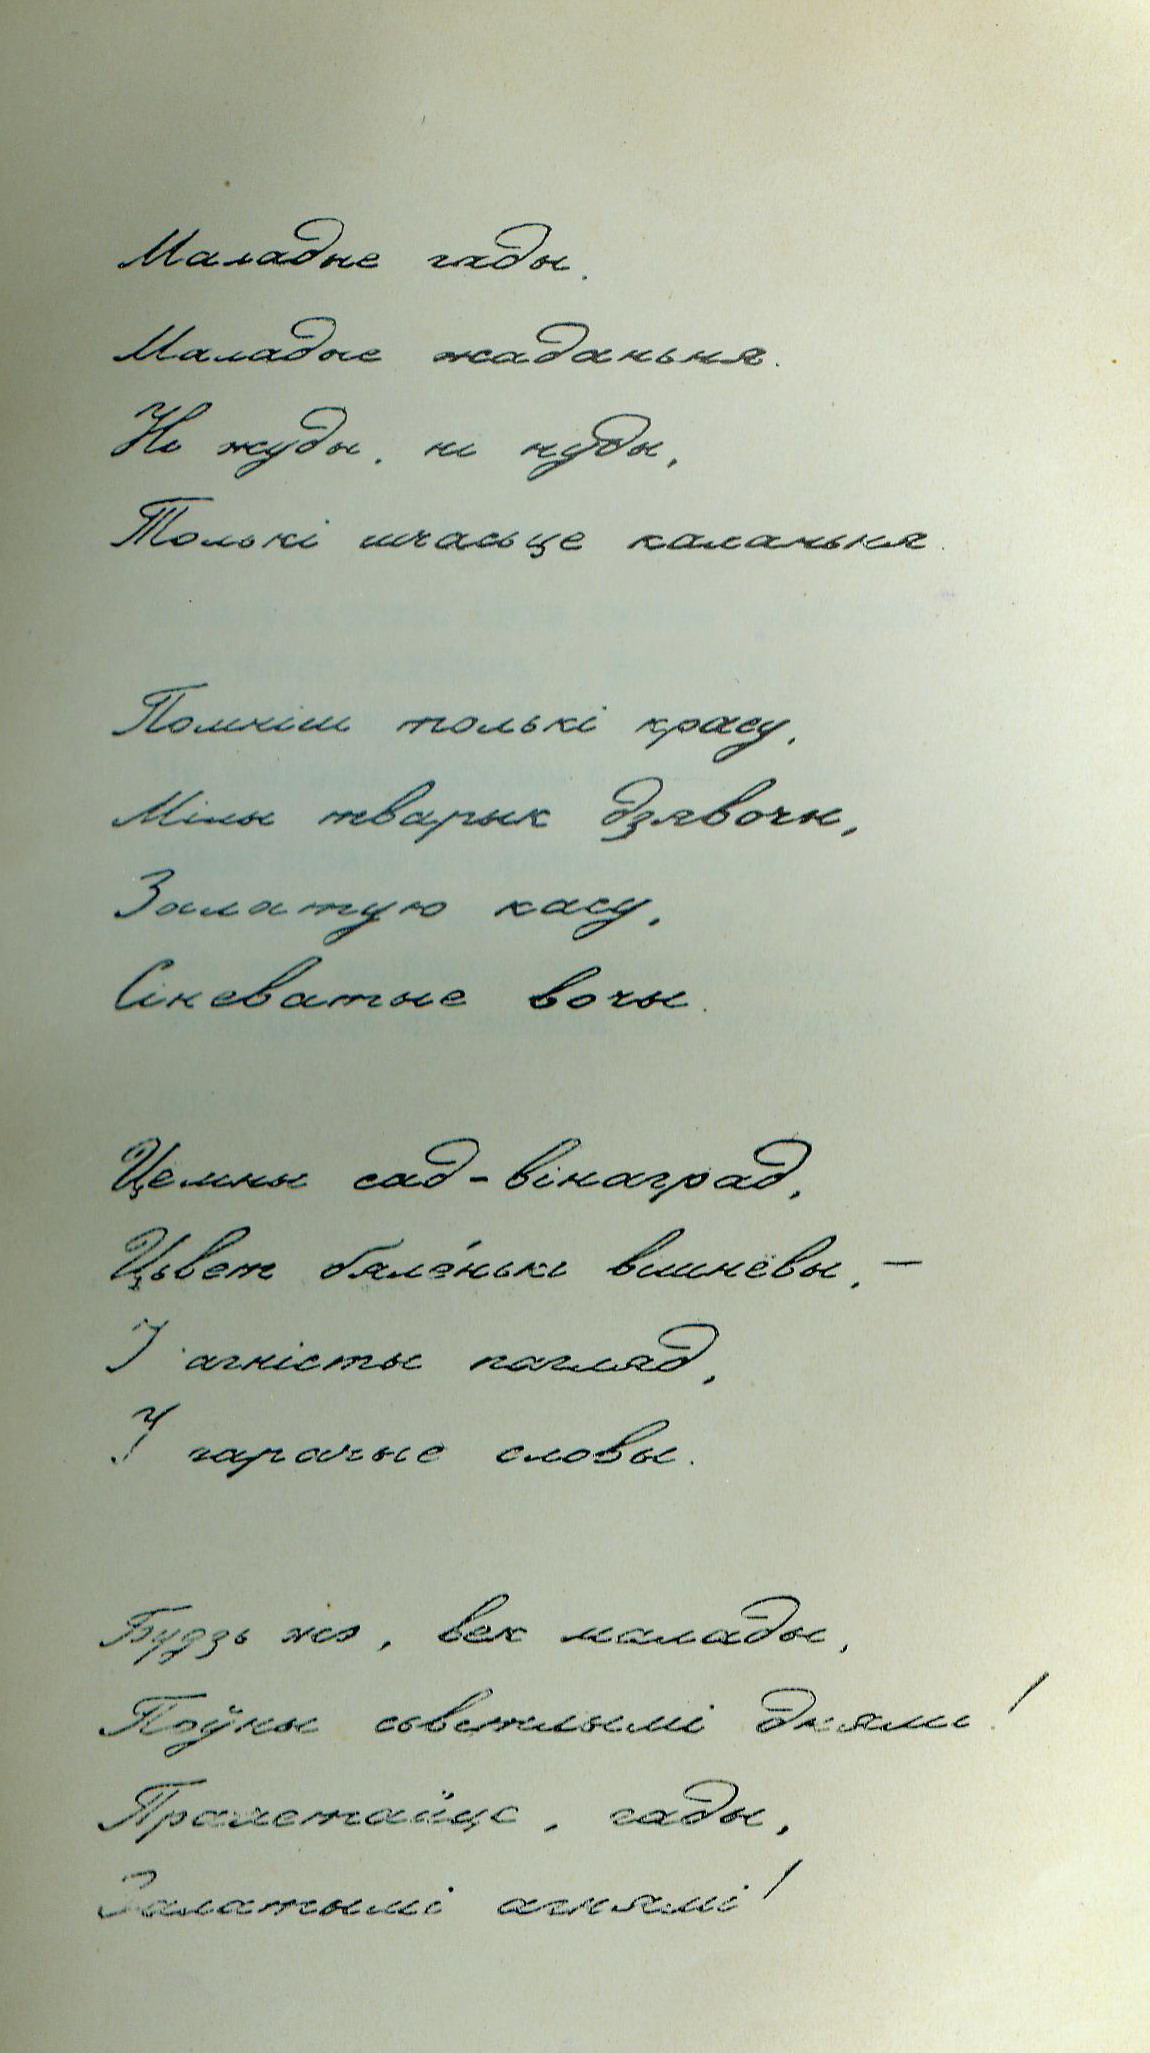 Маладые гады.
Маладые жаданьня.
Ні жуды, ні нуды,
Толькі шчасьце каханьня.
Помніш толькі красу,
Мілы тварык дзявочы,
Залатую касу,
Сіневатые вочы.
Цемны сад-вінаград,
Цьвет бяле́нькі вишнёвы, —
І агністы пагляд,
І гарачые словы.
Будзь жэ, век малады,
Поўны сьветлымі днямі!
Пралетайце, гады,
Залатымі агнямі!